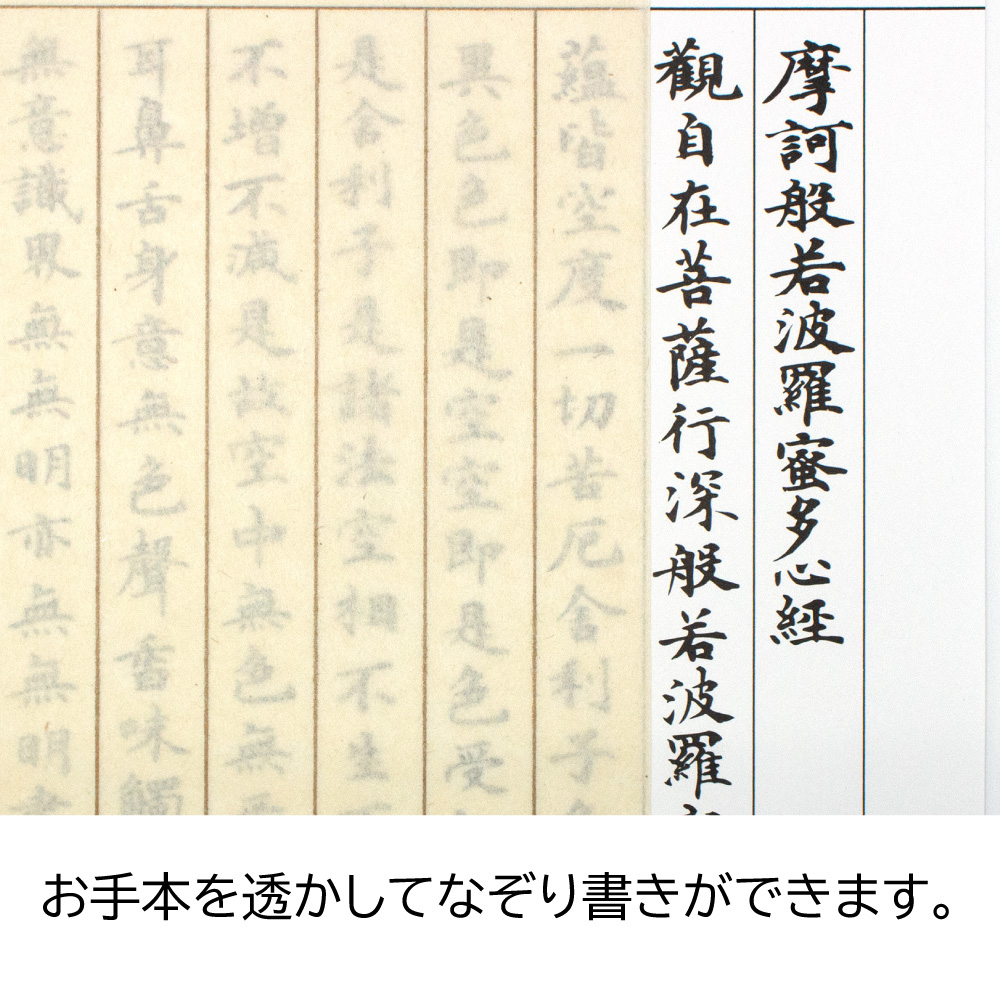 摩訶般若波羅蜜多心經
觀自在菩薩行深般若波羅
蘊皆空度一切苦厄舍利子
異色色即是空空即是色受
是舍利子是諸法空相不生
不增不減是故空中無色無
耳鼻舌身意無色聲香味觸
無意識界無無明亦無無明
お手本を透かしてなぞり書きができます。